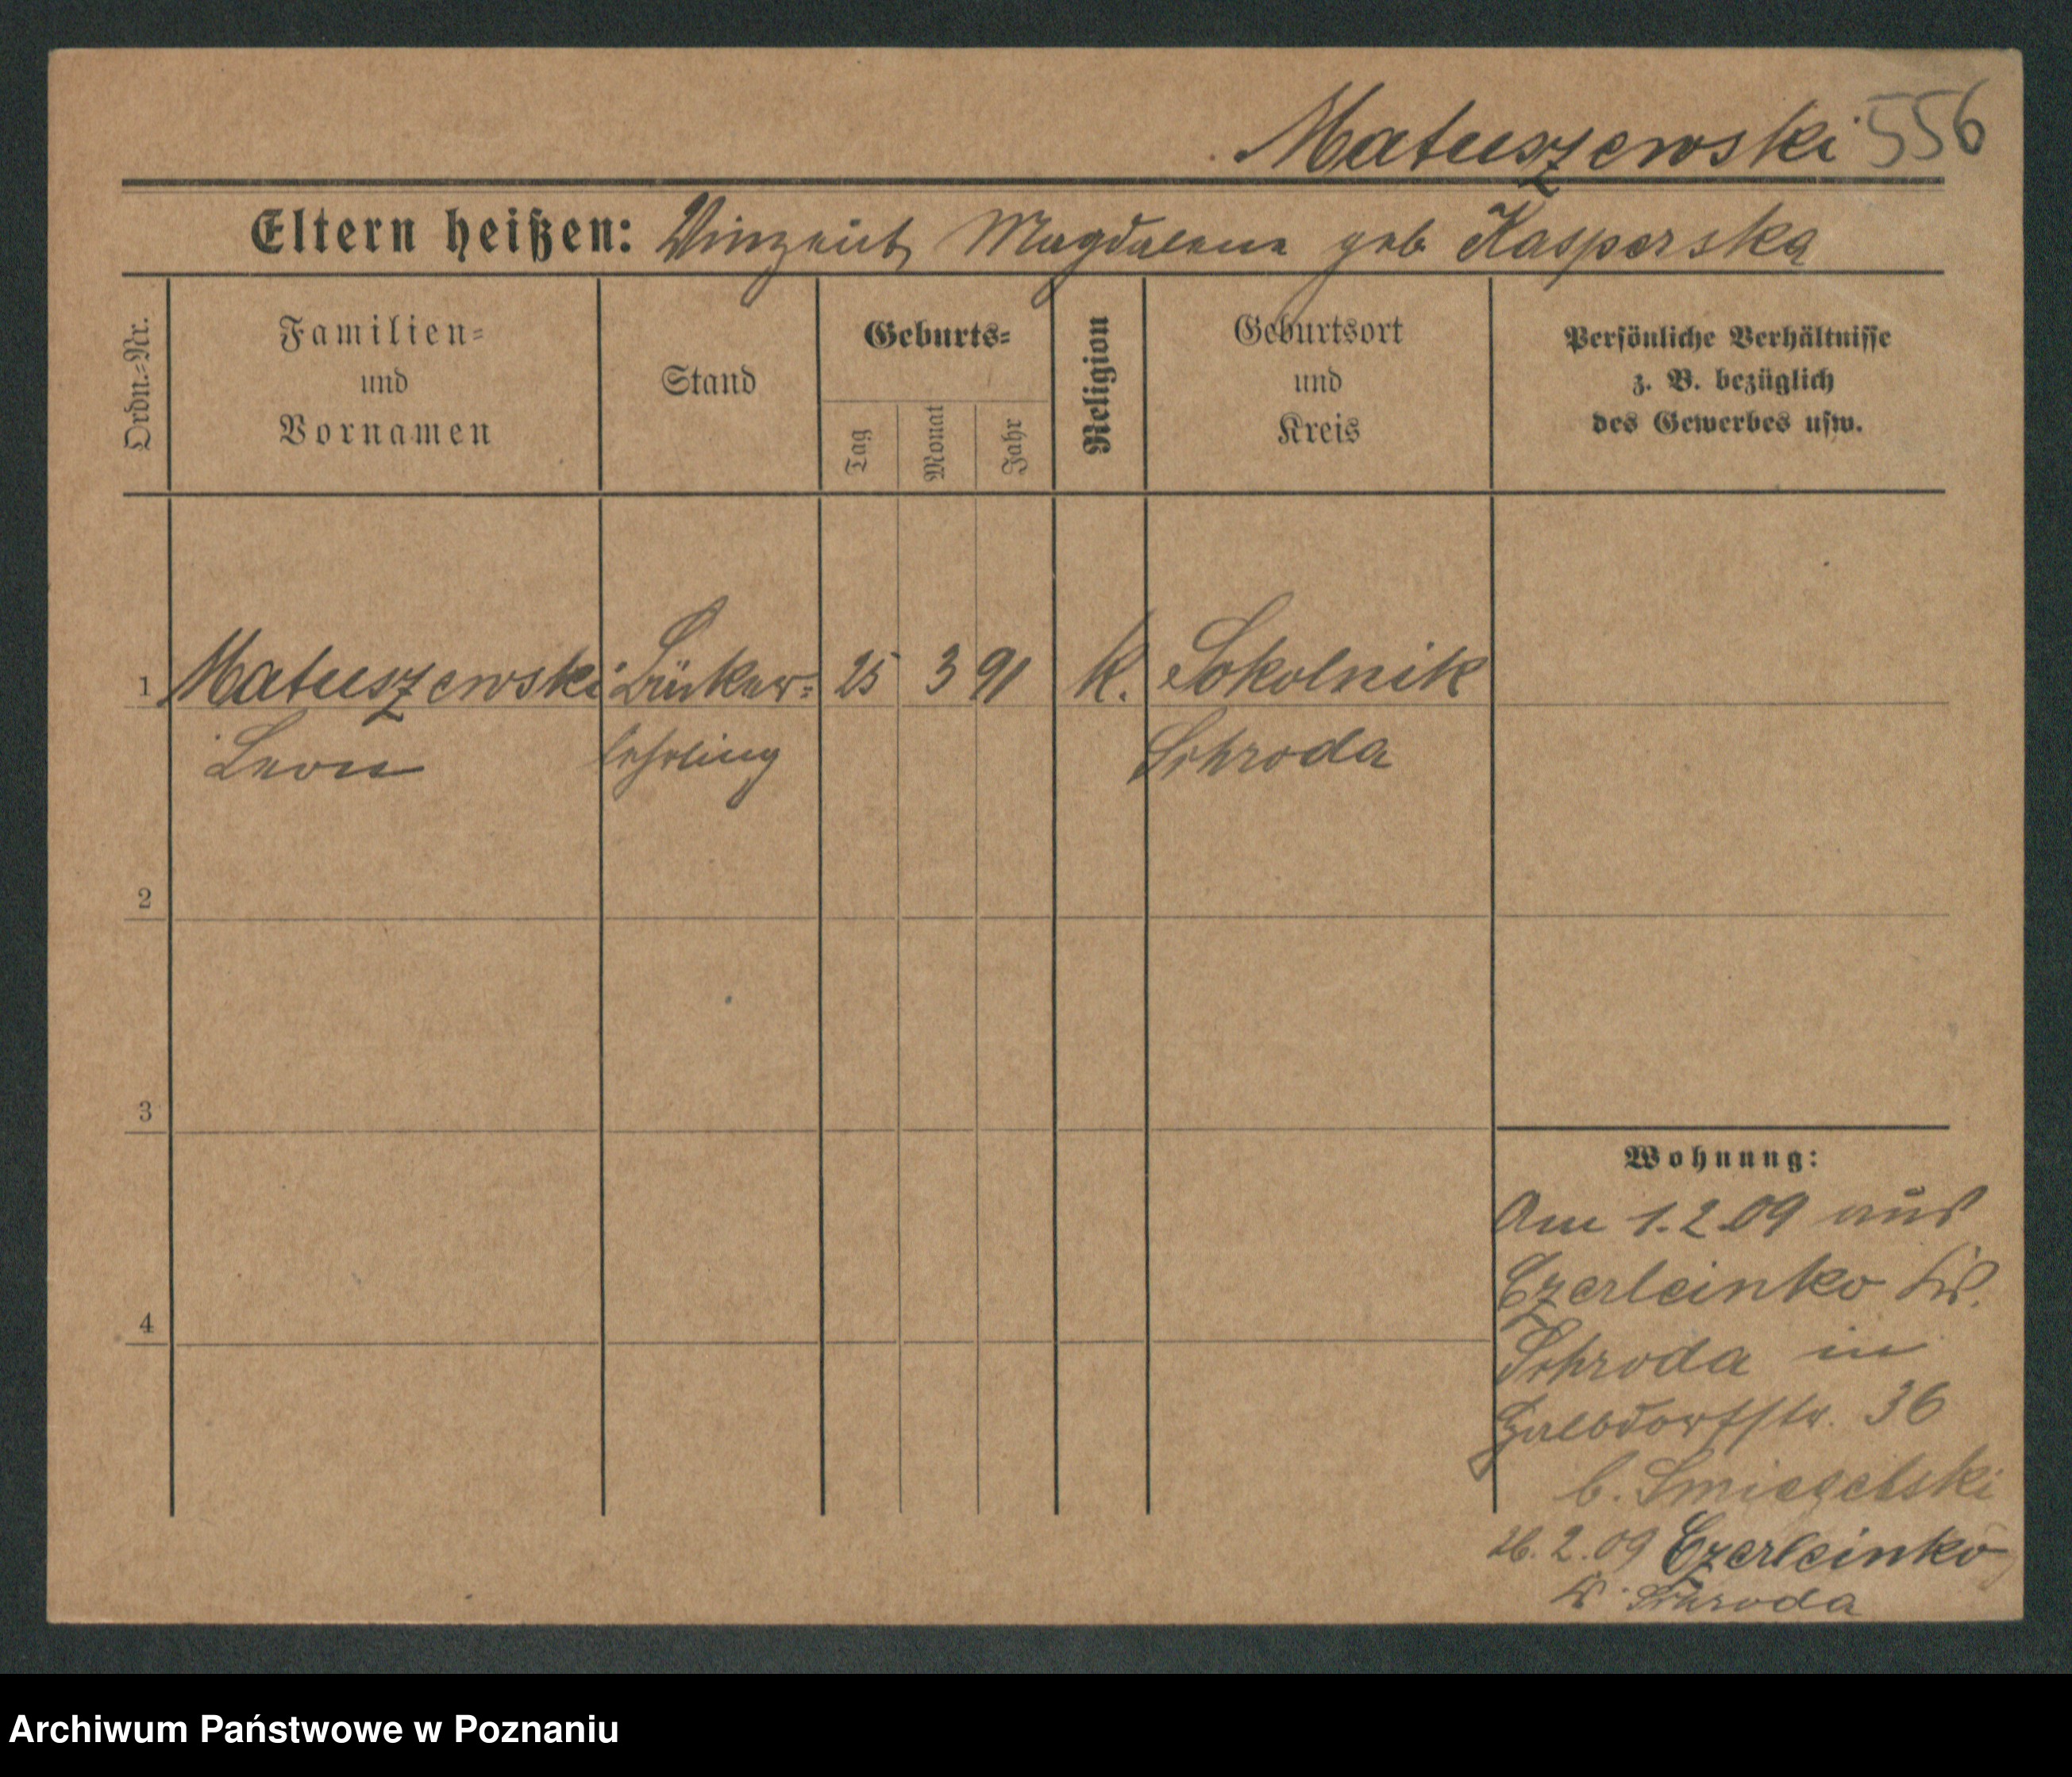 Matuszewski 556
Eltern heißen: Vinzent, Magdalena geb Kasperska
Ordn.=Nr.
Familien=
und
Vornamen
Stand
Geburts=
Tag
Monat
Jahr
Religion
Geburtsort
und
Kreis
Persönliche Verhältnisse
z. B. bezüglich
des Gewerbes usw.
1 Matuszewski Bäcker= 25 3 91 K. Sokolnik
Leon lehrling Schroda
2
3
4
Wohnung:
Am 1.2.09 aus
Czerleinko Kr.
Schroda in
Halbdorfstr. 36
b. Smiegelski
26.2.09 Czerleinko
Kr. Schroda
Archiwum Państwowe w Poznaniu